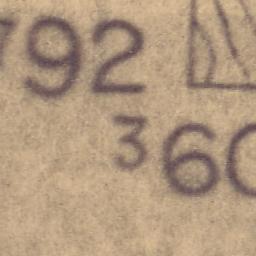 792
360